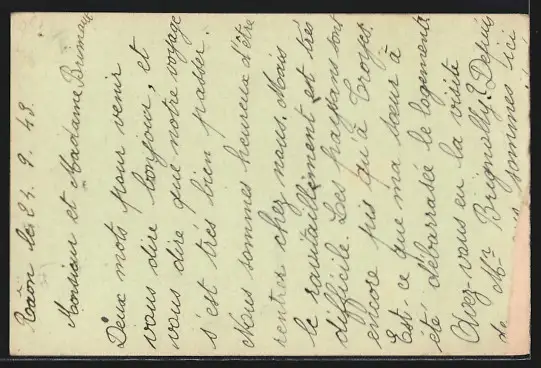 Raôn le 24. 9. 43.
Monsieur et Madame Brimau
Deux mots pour venir
vous dire bonjour, et
vous dire que notre voyage
s'est très bien passer.
Nous sommes heureux d'être
rentrer chez nous. Mais
le ravitaillement est très
difficile. Les paysans sont
encore pis qu'à Troyes.
Est-ce que ma sœur à
été débarrasée le logement.
Avez-vous eu la visite
de Mr Brignully? Depuis
sommes ici